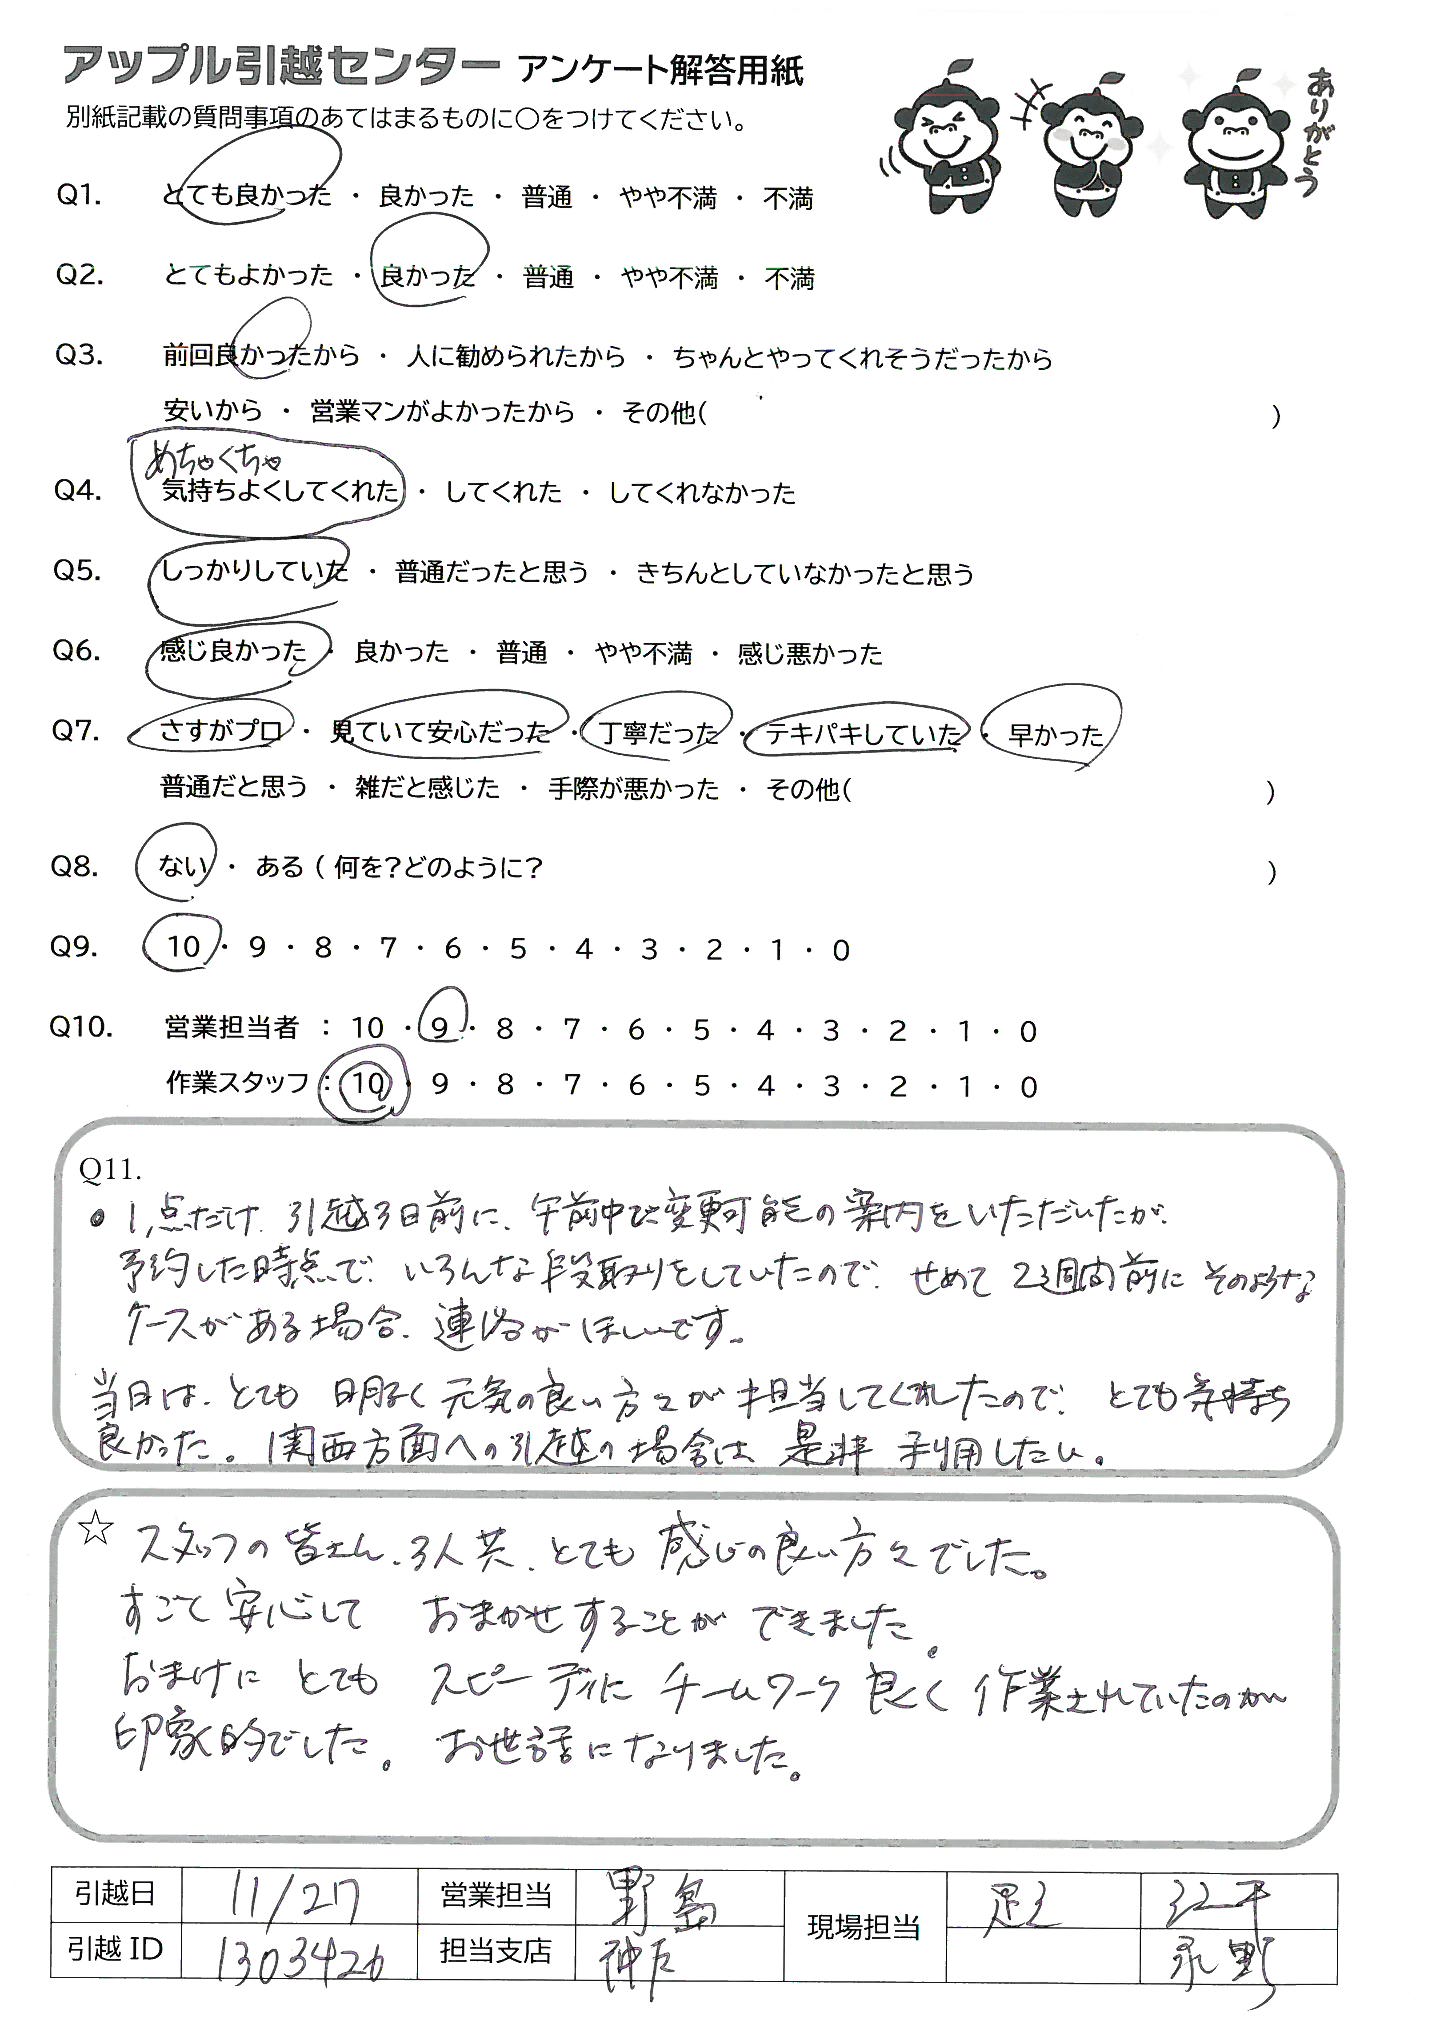 アップル引越センター アンケート解答用紙
別紙記載の質問事項のあてはまるものに○をつけてください。
ありがとう
Q1. とても良かった ・ 良かった ・ 普通 ・ やや不満 ・ 不満
Q2. とてもよかった ・ 良かった ・ 普通 ・ やや不満 ・ 不満
Q3. 前回良かったから ・ 人に勧められたから ・ ちゃんとやってくれそうだったから
安いから ・ 営業マンがよかったから ・ その他( )
めちゃくちゃ
Q4. 気持ちよくしてくれた ・ してくれた ・ してくれなかった
Q5. しっかりしていた ・ 普通だったと思う ・ きちんとしていなかったと思う
Q6. 感じ良かった ・ 良かった ・ 普通 ・ やや不満 ・ 感じ悪かった
Q7. さすがプロ ・ 見ていて安心だった ・ 丁寧だった ・ テキパキしていた ・ 早かった
普通だと思う ・ 雑だと感じた ・ 手際が悪かった ・ その他( )
Q8. ない ・ ある ( 何を?どのように? )
Q9. 10 ・ 9 ・ 8 ・ 7 ・ 6 ・ 5 ・ 4 ・ 3 ・ 2 ・ 1 ・ 0
Q10. 営業担当者 : 10 ・ 9 ・ 8 ・ 7 ・ 6 ・ 5 ・ 4 ・ 3 ・ 2 ・ 1 ・ 0
作業スタッフ : 10 ・ 9 ・ 8 ・ 7 ・ 6 ・ 5 ・ 4 ・ 3 ・ 2 ・ 1 ・ 0
Q11.
● 1点だけ、引越3日前に、午前中に変更可能の案内をいただいたが、
予約した時点で、いろんな段取りをしていたので、せめて2週間前にそのような
ケースがある場合、連絡がほしいです。
当日は、とても明るく元気の良い方々が担当してくれたので、とても気持ち
良かった。関西方面への引越の場合は是非利用したい。
☆ スタッフの皆さん、3人共、とても感じの良い方々でした。
すごく安心して おまかせすることができました。
おまけに とても スピーディに チームワーク良く作業されていたのが
印象的でした。お世話になりました。
引越日 11/27 営業担当 野島 現場担当 足立
引越ID 1303426 担当支店 神戸 永野